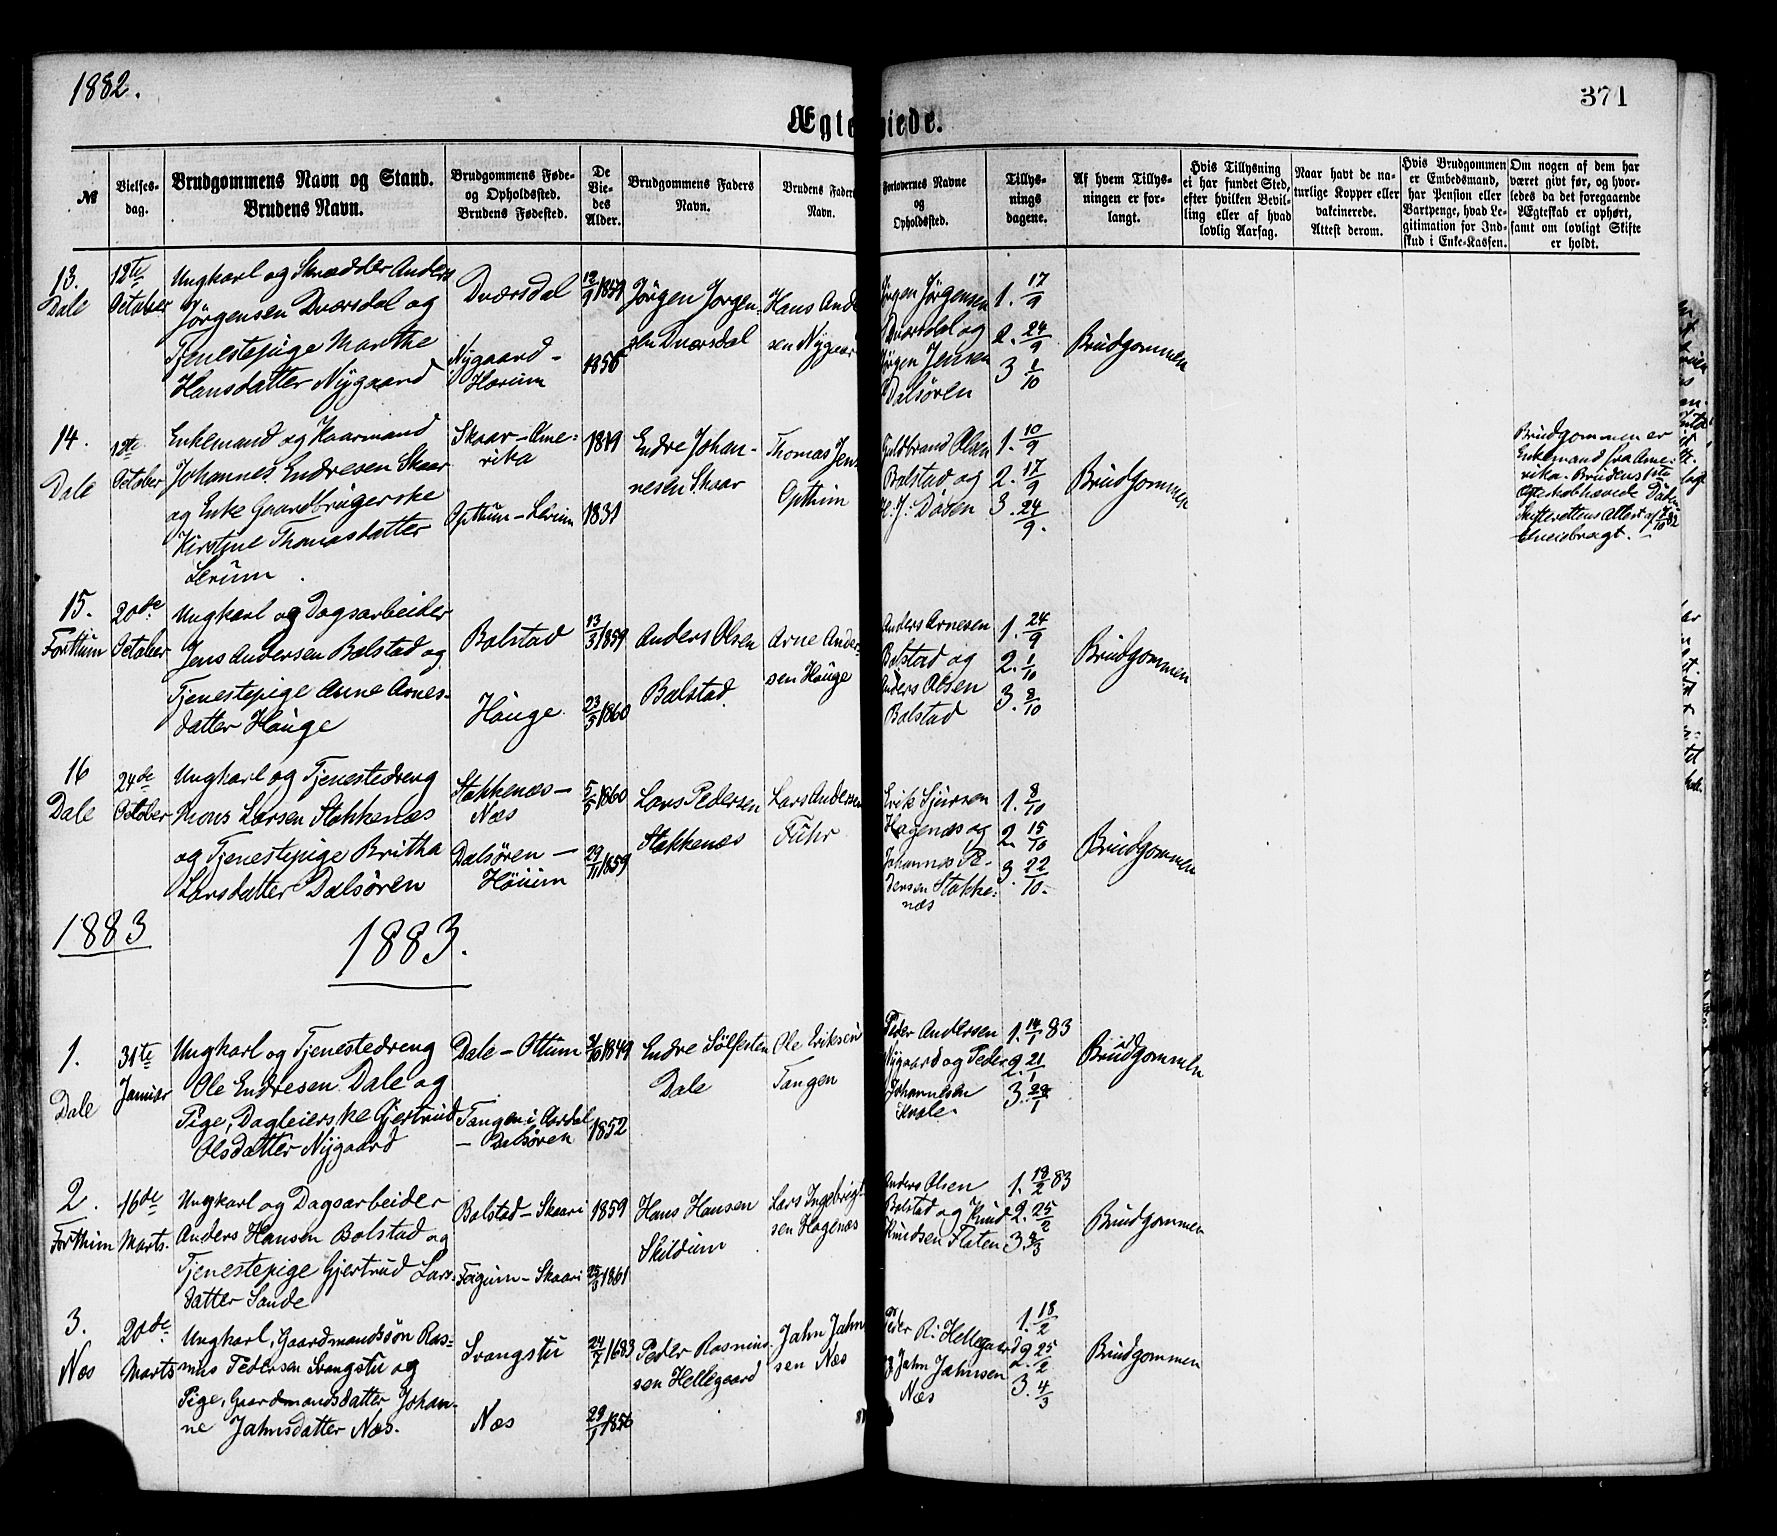 1882.
371
Ægteviede.
№
Vielses-
dag.
Brudgommens Navn og Stand.
Brudens Navn.
Brudgommens Føde-
og Opholdssted.
Brudens Fødested.
De
Vie-
des
Alder.
Brudgommens Faders
Navn.
Brudens Faders
Navn.
Forlovernes Navne
og
Opholdssted.
Tillys-
nings
dagene.
Af hvem Tillys-
ningen er for-
langt.
Hvis Tillysning
ei har fundet Sted,
efter hvilken Bevil-
ling eller af hvad
lovlig Aarsag.
Naar havt de na-
turlige Kopper eller
vakcinerede.
Attest derom.
Hvis Brudgommen
er Embedsmand,
har Pension eller
Vartpenge, hvad Le-
gitimation for Ind-
skud i Enke-Kassen.
Om nogen af dem har
været gift før, og hvor-
ledes da det foregaaende
Ægteskab er ophørt,
samt om lovligt Skifte
er holdt.
13.
Dale
12te
October
Ungkarl og Skrædder Anders
Jörgensen Dværsdal og
Tjenestepige Marthe
Hansdatter Nygaard
Dværsdal
Nygaard -
12/9 1859
1856
Jörgen Jorgen-
sen Dværsdal
Hans Ande
sen Nygaar
Jörgen Jörgensen
Dværsdal og
Jörgen Jensen
Dalsören
1. 17/9
2. 24/9
3 1/10
Brudgommen
14.
Dale
12te
October
Enkemand og Kaarmand
Johannes Endresen Skaar
og Enke Gaardbrugerske
Kirstine Thomasdatter
Lerum
Skaar - Ame-
rika
Opthun - Lerum
1819
1831
Endre Johan-
nesen Skaar
Thomas Jens
Opthun
Guldbrand Olsen
Bolstad og
1. 10/9
2. 17/9
3. 24/9.
Brudgommen
Brudgommen er
Enkemand fra Ame-
rika. Brudens 1ste
15.
Forthun
20de
October
Ungkarl og Dagsarbeider
Jens Andersen Bolstad og
Tjenestepige Anne Arnes-
datter Hauge
Bolstad
Hauge
13/3 1859
23/3 1860
Anders Olsen
Bolstad.
Arne Ander-
sen Hauge
Anders Arnesen
Bolstad og
Anders Olsen
Bolstad
1. 24/9
2. 1/10
3. 8/10
Brudgommen
16
Dale
24de
October
Ungkarl og Tjenestedreng
Mons Larsen Stokkenæs
og Tjenestepige Britha
Larsdatter Dalsören
Stokkenæs -
Næs
Dalsören -
5/5 1860
29/11 1859
Lars Pedersen
Stokkenæs
Lars Andersen
Fuhr
Erik Sjursen
Hagenæs og
Johannes Pe-
dersen Stokke-
næs
1. 8/10
2. 15/10
3. 22/10.
Brudgommen
1883
1883.
1.
Dale
31te
Januar
Ungkarl og Tjenestedreng
Ole Endresen Dale og
Pige, Dagleierske Gjertrud
Olsdatter Nygaard
Dale - Ottum
Tangen i Aardal
- Dalsören
1849
1852
Endre Sölfesten
Dale
Ole Eriksen
Tangen
Peder Andersen
Nygaard og Peder
Johannesen
Kvale.
1. 14/1 83
2. 21/1
3. 28/1
Brudgommen
2.
Forthun
16de
Marts.
Ungkarl og Dagsarbeider
Anders Hansen Bolstad og
Tjenestepige Gjertrud Lars-
datter Sande
Bolstad - Skaari
Fuigum - Skaari
1859
25/3 1861
Hans Hansen
Skildum
Lars Ingebrigt-
sen Hagenæs
Anders Olsen
Bolstad og Knud
Knudsen Flaten
1. 18/2 83
2. 25/2
3. 4/3
Brudgommen
3.
Næs
20de
Marts
Ungkarl, Gaardmandssön Ras-
mus Pedersen Svangstu og
Pige, Gaardmandsdatter Johan-
ne Jahnsdatter Næs.
Svangstu
Næs
24/7 1683
29/1 1856
Peder Rasmus-
sen Hellegaard
Jahn Jahn
sen Næs
Peder R. Hellegaard
og Jahn Jahnsen
Næs
1. 18/2
2. 25/2
3. 4/3
Brudgommen